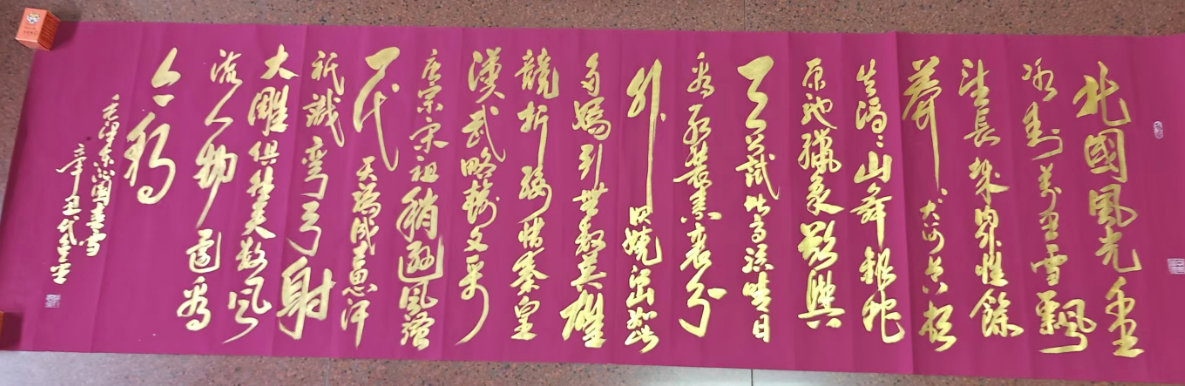 北國風光千里
冰封萬里雪飄
望長城内外惟餘
莽莽大河上下頓
失滔滔山舞銀蛇
原馳蠟象欲與
天公試比高須晴日
看紅裝素裹分
外妖嬈江山如此
多嬌引無數英雄
競折腰惜秦皇
漢武略輸文采
唐宗宋祖稍遜風騷
一代天驕成吉思汗
祇識彎弓射
大雕俱往矣數風
流人物還看
今朝
毛澤東沁園春雪
辛丑